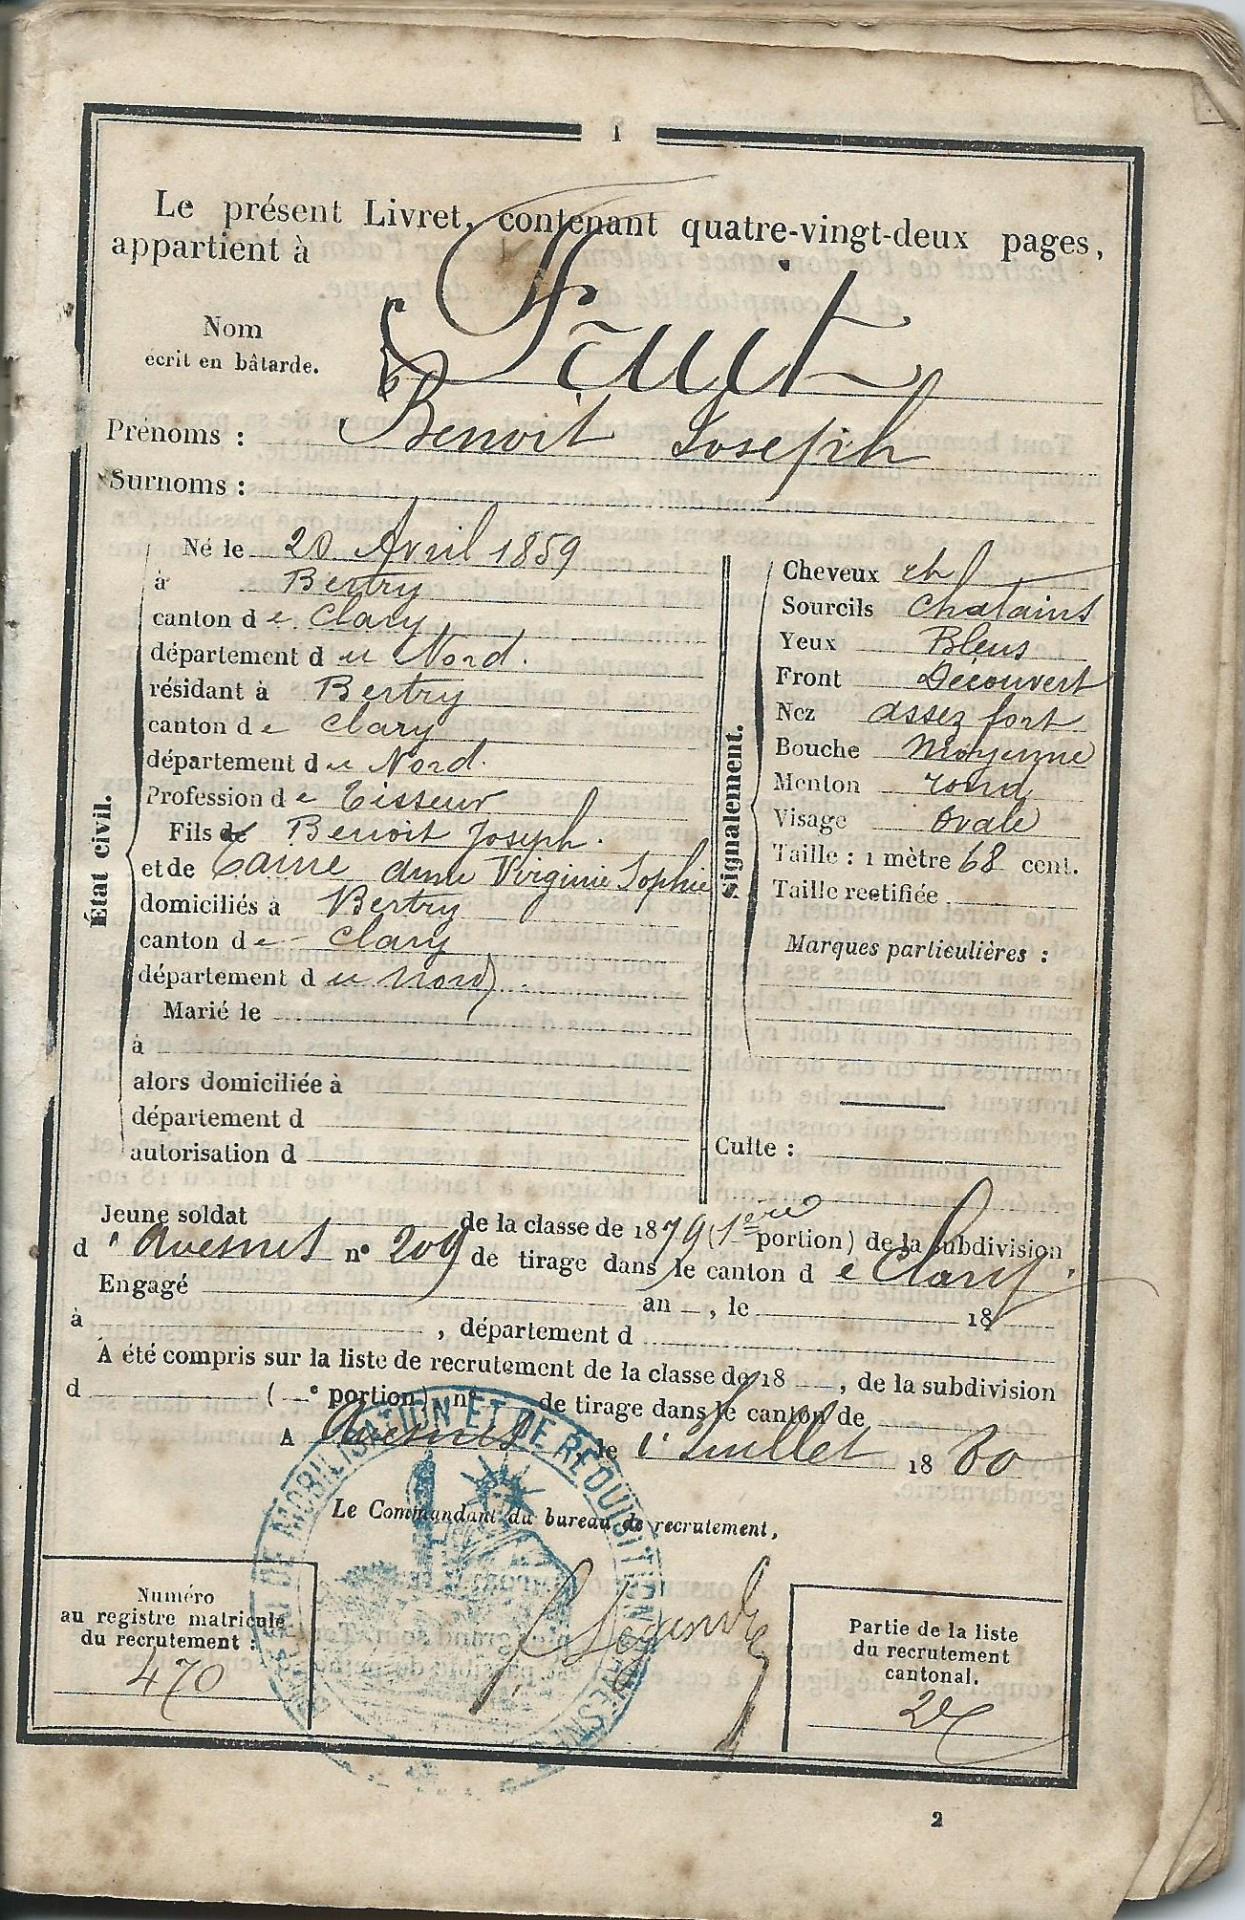 1
Le présent Livret, contenant quatre-vingt-deux pages,
appartient à
Nom
écrit en bâtarde.
Fruit
Prénoms : Benoit Joseph
Surnoms :
État civil.
Né le 20 Avril 1859
à Bertry
canton de Clary
département du Nord.
résidant à Bertry
canton de Clary
département du Nord.
Profession de Tisseur
Fils de Benoit Joseph.
et de Taine Anne Virginie Sophie
domiciliés à Bertry
canton de Clary
département du Nord
Marié le
à
alors domiciliée à
département d
autorisation d
signalement.
Cheveux ch
Sourcils Chatains
Yeux Bleus
Front Découvert
Nez assez fort
Bouche Moyenne
Menton rond
Visage Ovale
Taille : 1 mètre 68 cent.
Taille rectifiée
Marques particulières :
Culte :
Jeune soldat de la classe de 1879 (1ère portion) de la subdivision
d'Avesnes n° 209 de tirage dans le canton de Clary
Engagé an , le 18
à , département d
A été compris sur la liste de recrutement de la classe de 18 , de la subdivision
d ( e portion) n° de tirage dans le canton de
A Avesnes, le 1r Juillet 1880
Le Commandant du bureau de recrutement,
DE MOBILISATION ET DE REQUISITION
Numéro
au registre matricule
du recrutement :
470
Partie de la liste
du recrutement
cantonal.
2e
2